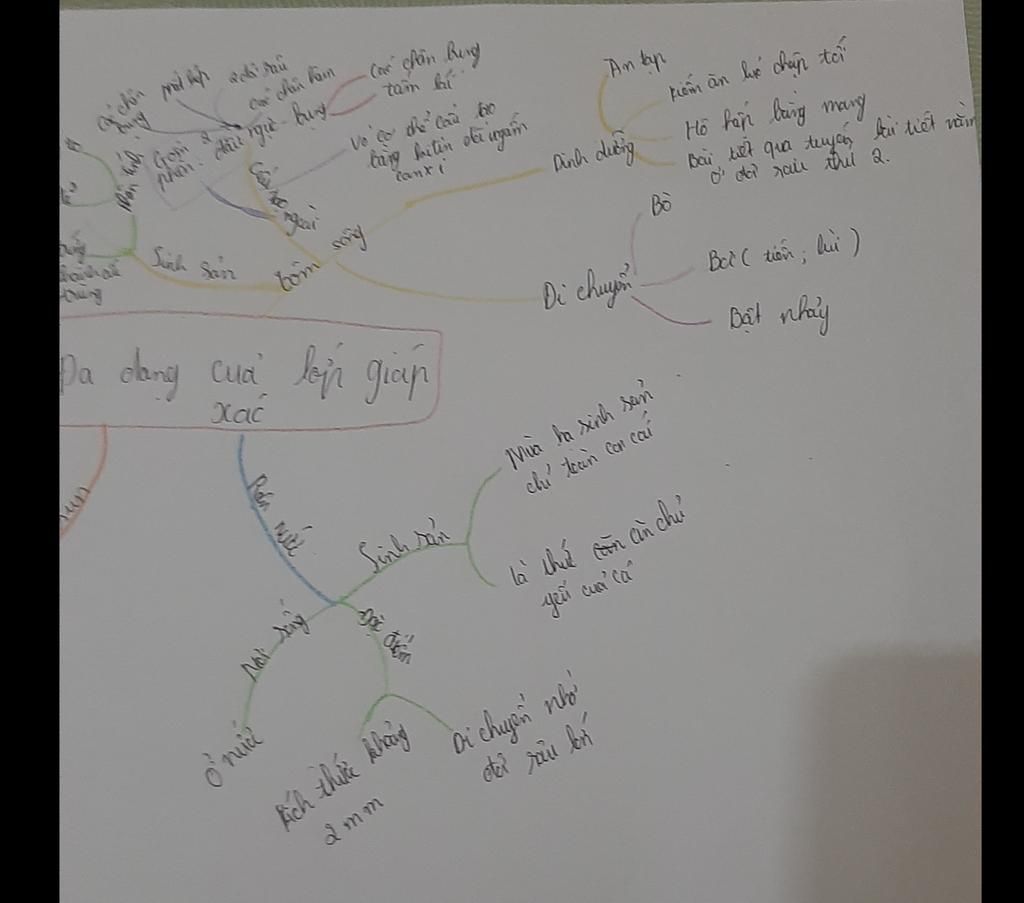 một lớp 2 đôi râu
Các chân hàm
Các chân bụng
tấm lái
Các chân
bụng
Gồm 2
phần: đầu ngực - bụng
Cấu tạo
ngoài
Vỏ cơ thể cấu tạo
bằng kitin đá ngấm
canxi
Dinh dưỡng
Ăn tạp
Kiếm ăn lúc chập tối
Hô hấp bằng mang
Bài tiết qua tuyến bài tiết nằm
ở đôi râu thứ 2.
Sinh sản
tôm sông
trứng
Di chuyển
Bò
Bơi ( tiến ; lùi )
Bật nhảy
Đa dạng của lớp giáp
xác
sun
Rận nước
Sinh sản
Mùa hạ sinh sản
chỉ toàn con cái
là thức ăn chủ
yếu của cá
Nơi sống
Ở nước
Đặc điểm
Kích thước khoảng
2 mm
Di chuyển nhờ
đôi râu lớn